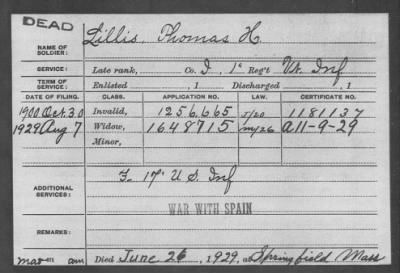 DEAD
NAME OF SOLDIER: Lillis, Thomas H.
SERVICE: Late rank, Co. I, 1st Reg't Vt. Inf
TERM OF SERVICE: Enlisted , 1 Discharged , 1
DATE OF FILING. CLASS. APPLICATION NO. LAW. CERTIFICATE NO.
1900 Oct. 30 Invalid, 1256665 J/20 1181137
1929 Aug 7 Widow, 1648715 my26 A11-9-29
Minor,
ADDITIONAL SERVICES: F. 17" U S Inf
WAR WITH SPAIN
REMARKS:
am Died June 26, 1929, at Springfield Mass